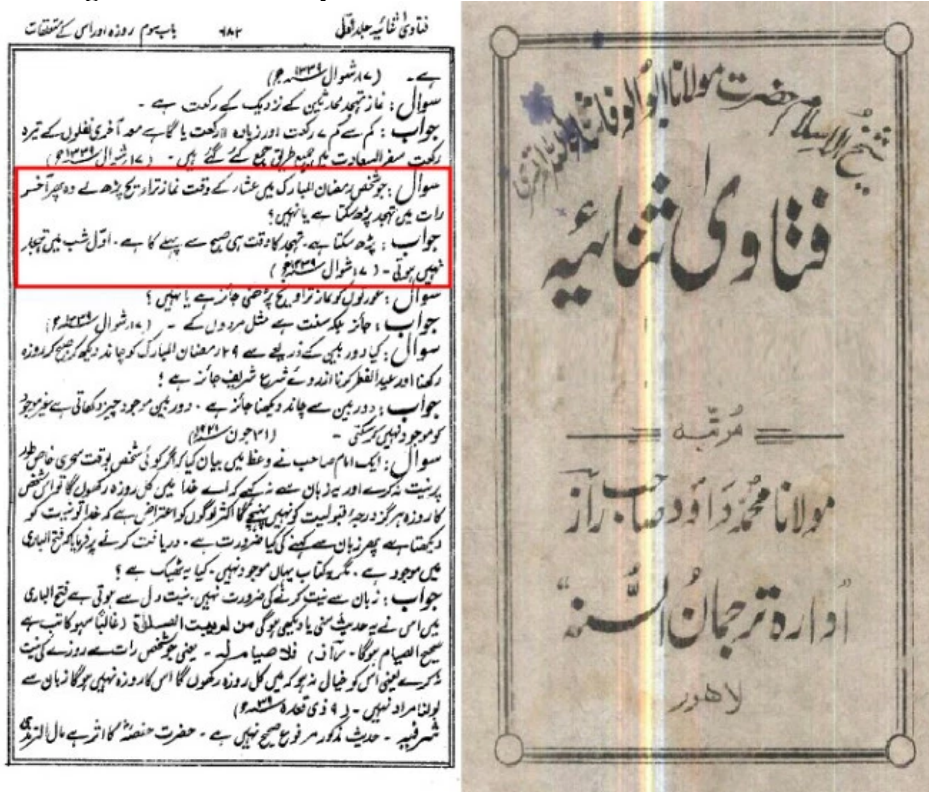 فتاویٰ ثنائیہ جلد اول ۶۸۲ باب سوم روزہ اور اس کے متعلقات
ہے۔ (۱۷ر شوال ۱۳۳۹ھ)
سوال : نماز تہجد محدثین کے نزدیک کے رکعت ہے ۔
جواب : کم سے کم رکعت اور زیادہ رکعت یا معہ آخری نفلوں کے تیرہ
رکعت سفر السعادت میں جمیع طرق جمع کئے گئے ہیں ۔ (۱۷ر شوال ۱۳۳۹ھ)
سوال : جو شخص رمضان المبارک میں عشاء کے وقت نماز تراویح پڑھ لے وہ پھر آخر
رات میں تہجد پڑھ سکتا ہے یا نہیں ؟
جواب : پڑھ سکتا ہے۔ تہجد کا وقت ہی صبح سے پہلے کا ہے ۔ اول شب میں تہجد
نہیں ہوتی ۔ (۱۷ر شوال ۱۳۳۹ھ)
سوال : عورتوں کو نماز تراویح پڑھنی جائز ہے یا نہیں ؟
جواب : جائز بلکہ سنت ہے مثل مردوں کے ۔ (۱۷ر شوال ۱۳۳۹ھ)
سوال : کیا دوربین کے ذریعے سے ۲۹ر رمضان المبارک کو چاند دیکھ کر صبح کر روزہ
رکھنا اور عید الفطر کرنا ازروئے شرع شریف جائز ہے ؟
جواب : دوربین سے چاند دیکھنا جائز ہے ۔ دوربین موجود چیز دکھاتی ہے غیر موجود
کو موجود نہیں کر سکتی ۔ جون ۱۹۲۱ء)
سوال : ایک امام صاحب نے وعظ میں بیان کیا کہ اگر کوئی شخص بوقت سحری خاص طور
پر نیت نہ کرے اور یہ زبان سے نہ کہے کہ اے خدا میں کل روزہ رکھوں گا تو اس شخص
کا روزہ ہرگز درجۂ قبولیت کو نہیں پہنچے گا اکثر لوگوں کو اعتراض ہے کہ خدا تو نیت کو
دیکھتا ہے پھر زبان سے کہنے کی کیا ضرورت ہے ۔ دریافت کرنے پر فرمایا کہ فتح الباری
میں موجود ہے ۔ مگر یہ کتاب یہاں موجود نہیں۔ کیا یہ ٹھیک ہے ؟
جواب : زبان سے نیت کرنے کی ضرورت نہیں۔ نیت دل سے ہوتی ہے فتح الباری
میں اس نے یہ حدیث سنی یا دیکھی ہوگی من لم یبیت الصلاۃ (غالباً سہو کاتب ہے
صحیح الصیام ہوگا۔ راز) فلا صیام لہ ۔ یعنی جو شخص رات سے روزے کی نیت
نہ کرے یعنی اس کو خیال نہ ہو کہ میں کل روزہ رکھوں گا اس کا روزہ نہیں ہوگا زبان سے
بولنا مراد نہیں ۔ (۹ ذی قعدہ ۱۳۳۹ھ)
شرفیہ ۔ حدیث مذکور مرفوع صحیح نہیں ہے ۔ حضرت حفصہؓ کا اثر ہے مال الترمذی
شیخ الاسلام حضرت مولانا ابو الوفا ثناء اللہ امرتسری
فتاویٰ ثنائیہ
مرتبہ
مولانا محمد داؤد صاحب راز
ادارہ ترجمان السنہ
لاہور